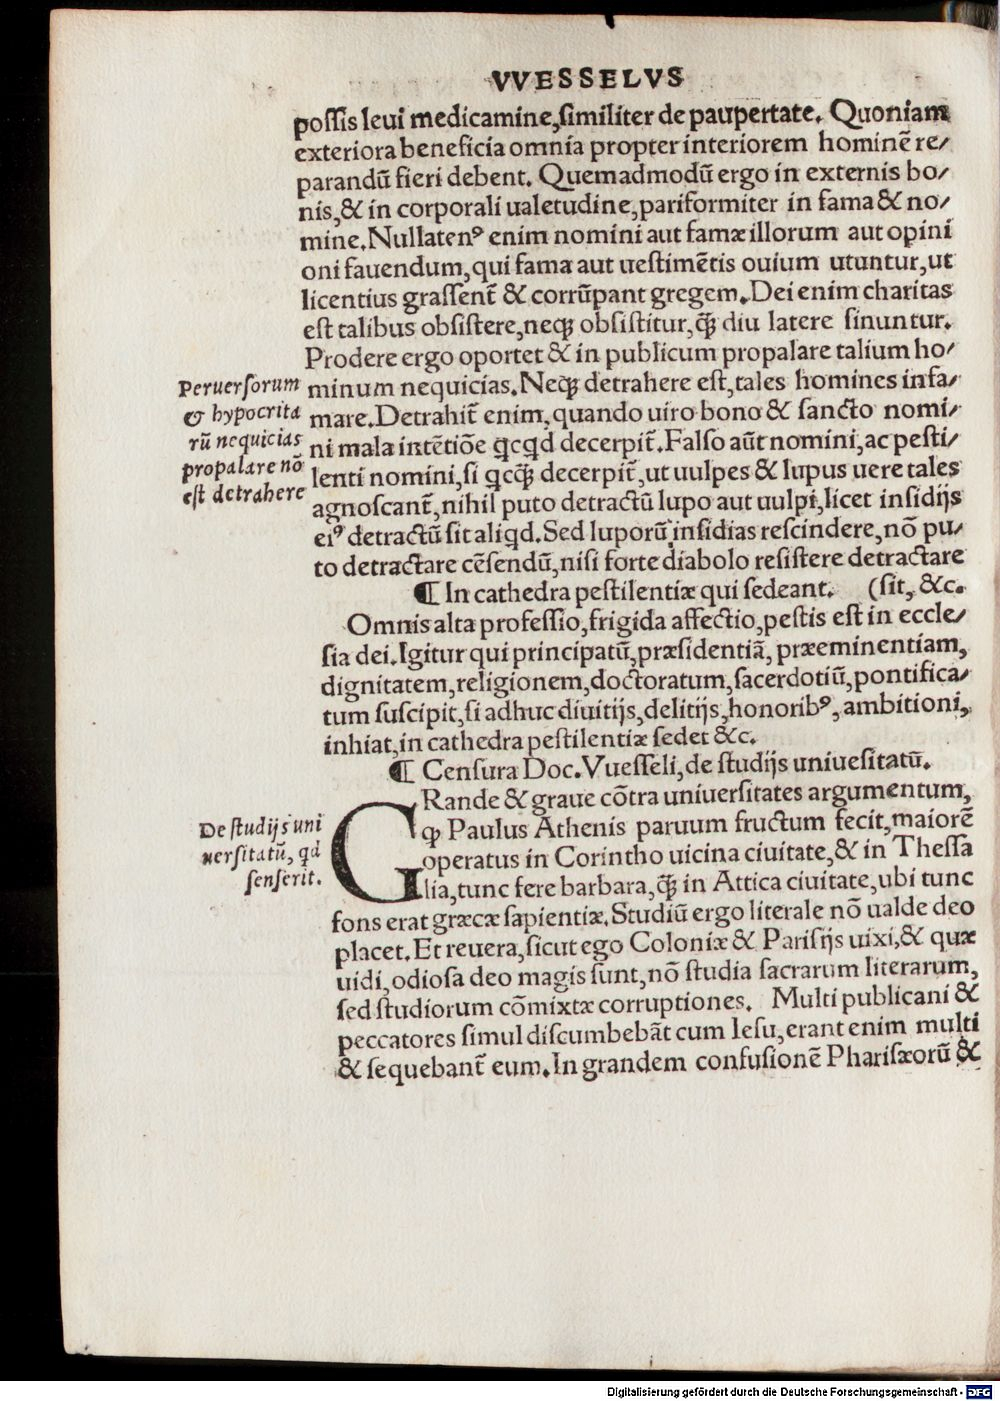 VVESSELVS
possis leui medicamine, similiter de paupertate. Quoniam
exteriora beneficia omnia propter interiorem hominē re/
parandū fieri debent. Quemadmodū ergo in externis bo/
nis, & in corporali ualetudine, pariformiter in fama & no/
mine. Nullatenꝰ enim nomini aut famæ illorum aut opini
oni fauendum, qui fama aut uestimētis ouium utuntur, ut
licentius grassent̃ & corrūpant gregem. Dei enim charitas
est talibus obsistere, neqꝫ obsistitur, q̄ꝫ diu latere sinuntur.
Prodere ergo oportet & in publicum propalare talium ho/
minum nequicias. Neqꝫ detrahere est, tales homines infa/
mare. Detrahit̃ enim, quando uiro bono & sancto nomi/
ni mala intētiōe ꝗcꝗd decerpit̃. Falso aūt nomini, ac pesti/
lenti nomini, si ꝗcq̄ꝫ decerpit̃, ut uulpes & lupus uere tales
agnoscant̃, nihil puto detractū lupo aut uulpi, licet insidijs
eiꝰ detractū sit aliꝗd. Sed luporū insidias rescindere, nō pu/
to detractare cēsendū, nisi forte diabolo resistere detractare
¶ In cathedra pestilentiæ qui sedeant. (sit, &c.
Omnis alta professio, frigida affectio, pestis est in eccle/
sia dei. Igitur qui principatū, præsidentiā, præeminentiam,
dignitatem, religionem, doctoratum, sacerdotiū, pontifica/
tum suscipit, si adhuc diuitijs, delitijs, honoribꝰ, ambitioni,
inhiat, in cathedra pestilentiæ sedet &c.
¶ Censura Doc. Vuesseli, de studijs uniuesitatū.
GRande & graue cōtra uniuersitates argumentum,
ꝙ Paulus Athenis paruum fructum fecit, maiorē
operatus in Corintho uicina ciuitate, & in Thessa
lia, tunc fere barbara, q̄ꝫ in Attica ciuitate, ubi tunc
fons erat græcæ sapientiæ. Studiū ergo literale nō ualde deo
placet. Et reuera, sicut ego Coloniæ & Parisijs uixi, & quæ
uidi, odiosa deo magis sunt, nō studia sacrarum literarum,
sed studiorum cōmixtæ corruptiones. Multi publicani &
peccatores simul discumbebāt cum Iesu, erant enim multi
& sequebant̃ eum. In grandem confusionē Pharisæorū &
Peruersorum
& hypocrita
rū nequicias
propalare nō
est detrahere
De studijs uni
uersitatū, qd
senserit.
Digitalisierung gefördert durch die Deutsche Forschungsgemeinschaft - DFG